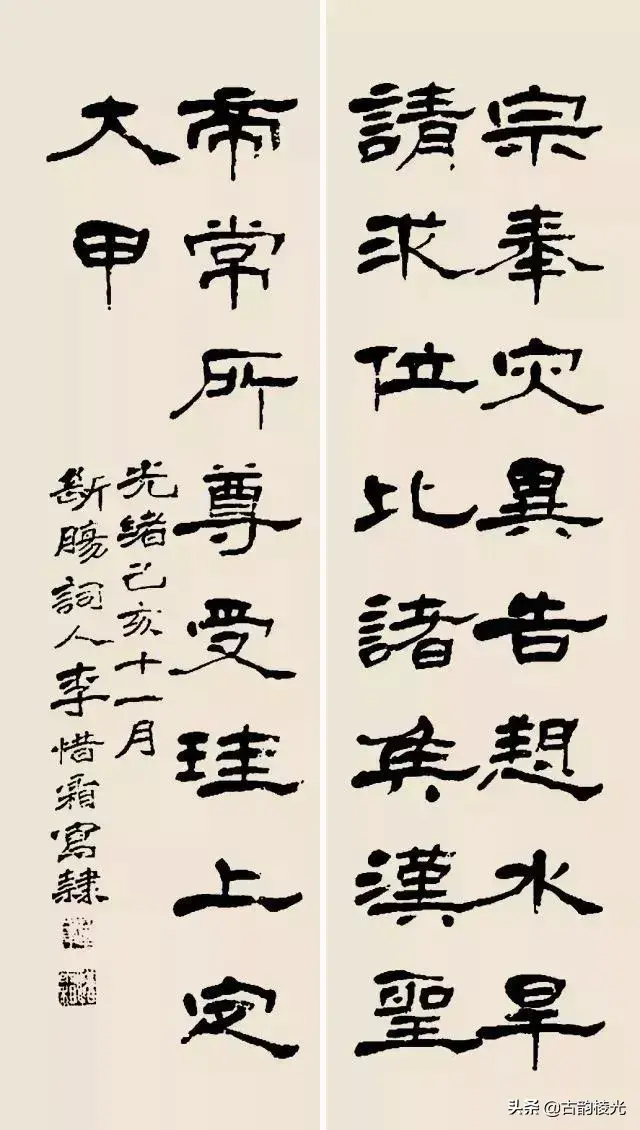 宗奉灾異告愬水旱
請求位比諸矦漢聖
帝常所尊受珪上定
大甲
光緒己亥十一月
斷腸詞人李惜霜寫隸
头条 @古韵棱光